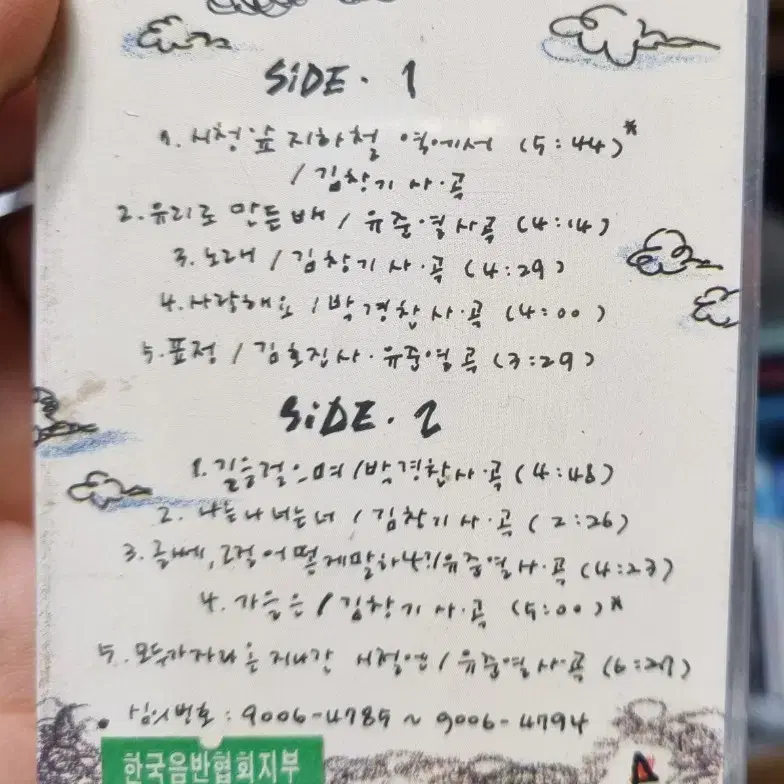 SiDE · 1
1. 시청앞 지하철 역에서 (5:44)*
/ 김창기 사·곡
2. 유리로 만든 배 / 유준열 사·곡 (4:14)
3. 노래 / 김창기 사·곡 (4:29)
4. 사랑해요 / 박경찬 사·곡 (4:00)
5. 표정 / 김호진 사·유준열 곡 (3:29)
SiDE · 2
1. 길을걸으며 / 박경찬 사·곡 (4:48)
2. 나는나 너는너 / 김창기 사·곡 (2:26)
3. 글쎄, 그걸 어떻게말하나?/유준열 사·곡 (4:23)
4. 가을은 / 김창기 사·곡 (5:00)*
5. 모두가 지나간 시절엔 / 유준열 사·곡 (6:27)
심의번호 : 9006-4785 ~ 9006-4794
한국음반협회지부